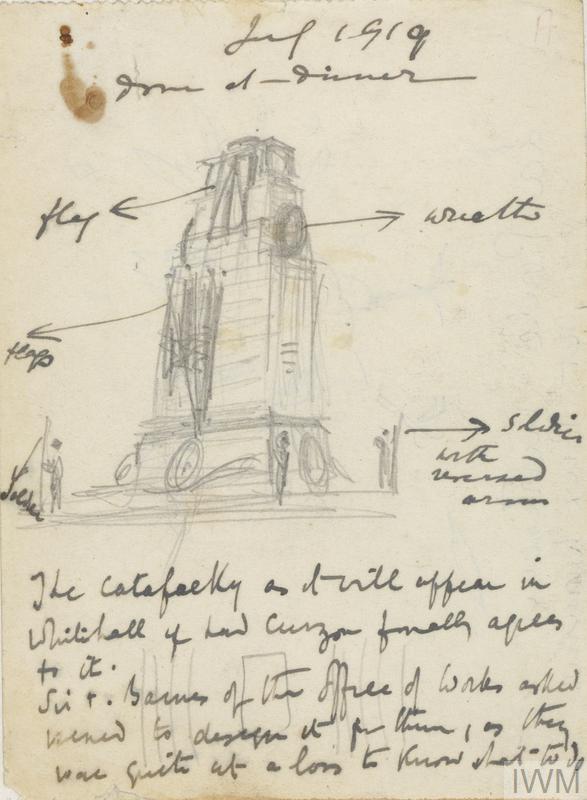 July 1919
done at dinner
flag
wreath
flags
Soldier
Soldier
with
reversed
arms
The catafalk as it will appear in
Whitehall if Lord Curzon finally agrees
to it.
Sir F. Baines of the Office of Works asked
to design it for them, as they
were quite at a loss to know what to do
IWM